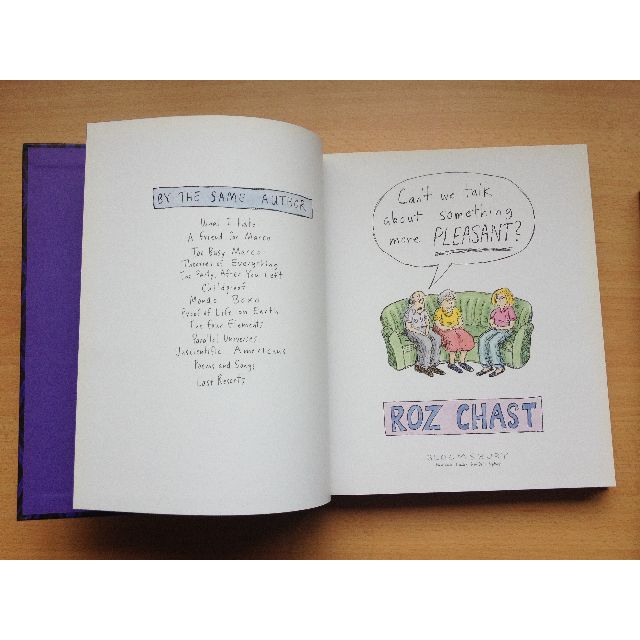 BY THE SAME AUTHOR
What I Hate
A Friend for Marco
Too Busy Marco
Theories of Everything
The Party, After You Left
Childproof
Mondo Boxo
Proof of Life on Earth
The Four Elements
Parallel Universes
Unscientific Americans
Poems and Songs
Last Resorts
Can't we talk
about something
more PLEASANT?
ROZ CHAST
BLOOMSBURY